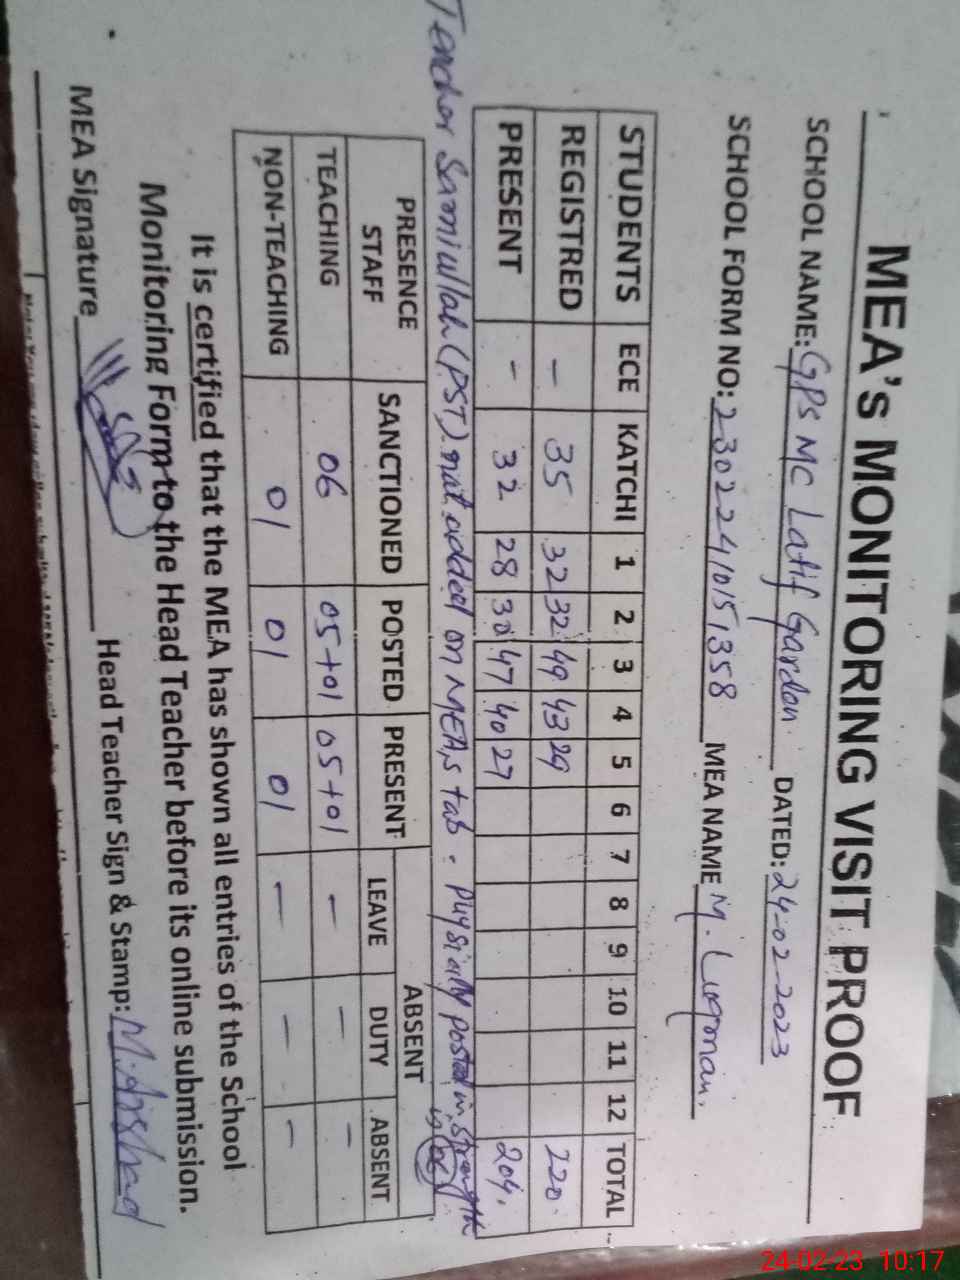 MEA's MONITORING VISIT PROOF
SCHOOL NAME: GPS MC Latif Garden DATED: 24-02-2023
SCHOOL FORM NO: 23022410151358 MEA NAME M. Luqman.
STUDENTS ECE KATCHI 1 2 3 4 5 6 7 8 9 10 11 12 TOTAL
REGISTRED – 35 32 32 49 43 29 220
PRESENT – 32 28 30 47 40 27 204.
Teacher Samiullah (PST) not added on MEAs tab. Physially posted in strength
is 06
PRESENCE STAFF SANCTIONED POSTED PRESENT ABSENT
LEAVE DUTY ABSENT
TEACHING 06 05+01 05+01 – – –
NON-TEACHING 01 01 01 – – –
It is certified that the MEA has shown all entries of the School
Monitoring Form to the Head Teacher before its online submission.
MEA Signature Head Teacher Sign & Stamp: M. Arshad
24-02-23 10:17